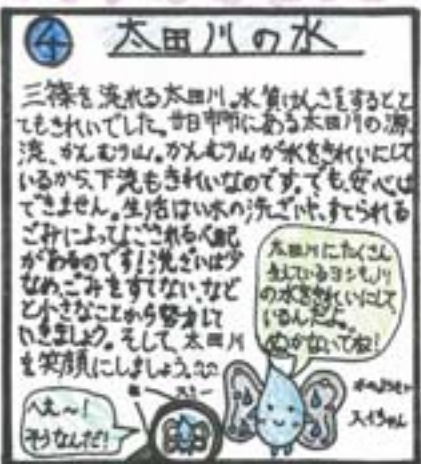 ④ 太田川の水
三篠を流れる太田川。水質けんさをするとと
てもきれいでした。廿日市市にある太田川の源
流、かんむり山。かんむり山が水をきれいにして
いるから、下流もきれいなのです。でも、安心は
できません。生活はい水の洗ざいや、すてられる
ごみによってよごされる心配
があるのです!洗ざいは少
なめ、ごみをすてない、など
と小さなことから努力して
いきましょう。そして、太田川
を笑顔にしましょう。
太田川にたくさん
生えているヨシも川
の水をきれいにして
いるんだよ。
ぬかないでね!
へぇ〜!
そうなんだ!
水のようせい
スイちゃん